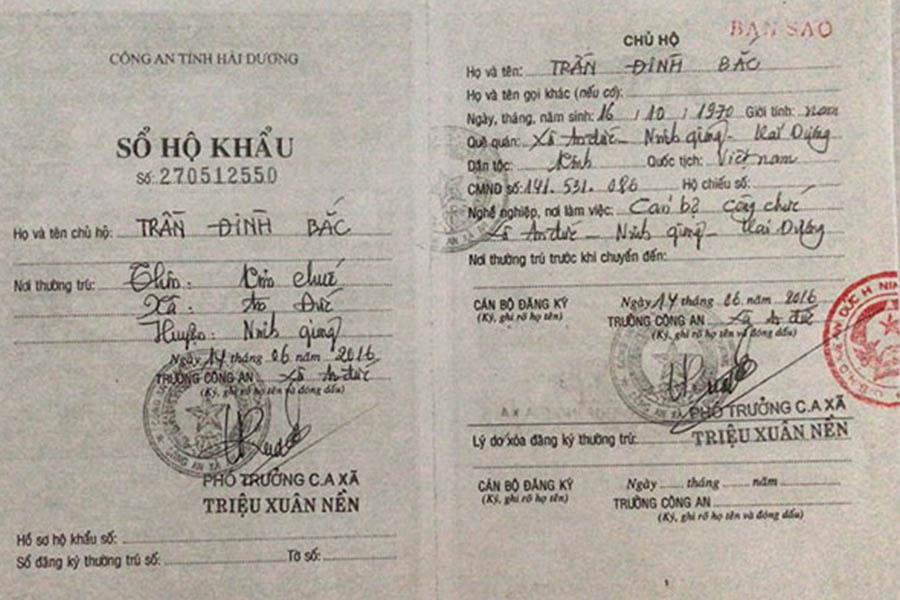 CÔNG AN TỈNH HẢI DƯƠNG
SỔ HỘ KHẨU
Số: 270512550
Họ và tên chủ hộ: TRẦN ĐÌNH BẮC
Nơi thường trú: Thôn:
Xã: An Đức
Huyện: Ninh giang
Ngày 14 tháng 06 năm 2016
TRƯỞNG CÔNG AN Xã An đức
(Ký, ghi rõ họ tên và đóng dấu)
PHÓ TRƯỞNG C.A XÃ
TRIỆU XUÂN NỀN
Hồ sơ hộ khẩu số:
Sổ đăng ký thường trú số: Tờ số:
BẢN SAO
CHỦ HỘ
Họ và tên: TRẦN ĐÌNH BẮC
Họ và tên gọi khác (nếu có):
Ngày, tháng, năm sinh: 16 / 10 / 1970 Giới tính: nam
Quê quán: Xã An đức - Ninh giang - Hải Dương
Dân tộc: Kinh Quốc tịch: Việt nam
CMND số: 141.531.086 Hộ chiếu số:
Nghề nghiệp, nơi làm việc: Cán bộ công chức
Xã An đức - Ninh giang - Hải Dương
Nơi thường trú trước khi chuyển đến:
CÁN BỘ ĐĂNG KÝ
(Ký, ghi rõ họ tên)
Ngày 14 tháng 06 năm 2016
TRƯỞNG CÔNG AN Xã An đức
(Ký, ghi rõ họ tên và đóng dấu)
PHÓ TRƯỞNG C.A XÃ
TRIỆU XUÂN NỀN
Lý do xóa đăng ký thường trú:
CÁN BỘ ĐĂNG KÝ
(Ký, ghi rõ họ tên)
Ngày tháng năm
TRƯỞNG CÔNG AN
(Ký, ghi rõ họ tên và đóng dấu)
1